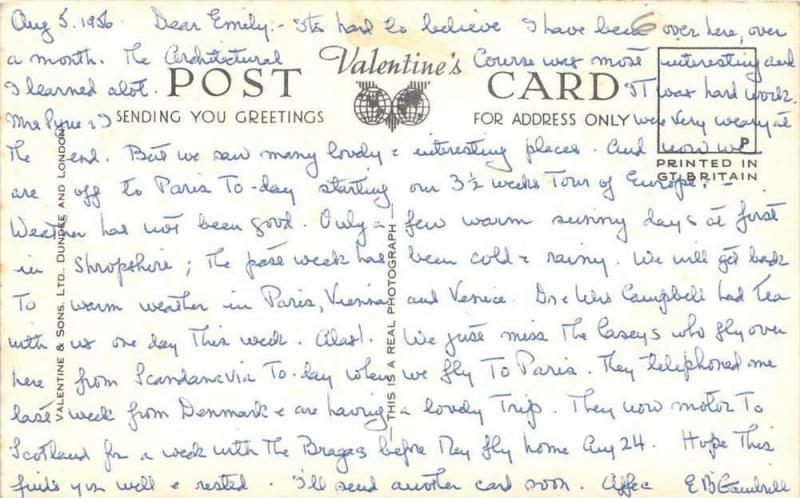 Aug 5. 1956 Dear Emily:- Its hard to believe I have been over here, over
6
a month. The Architectural Course was most interesting and
Valentine's
I learned alot. IT was hard work.
POST CARD
Mrs Pyne & I were very weary at
SENDING YOU GREETINGS FOR ADDRESS ONLY
P
PRINTED IN
GT. BRITAIN
The end. But we saw many lovely & interesting places. And now we
are off to Paris To-day starting our 3½ weeks Tour of Europe. -
Weather has not been good. Only a few warm sunny days at first
in Shropshire; The past week has been cold & rainy. We will get back
To warm weather in Paris, Vienna and Venice. Dr & Mrs Campbell had Tea
with us one day This week. Alas!. We just miss The Caseys who fly over
here from Scandanavia To-day when we fly To Paris. They telephoned me
last week from Denmark & are having a lovely Trip. They now motor To
Scotland for a week with The Bragas before They fly home Aug 24. Hope This
finds you well & rested. I'll send another card soon. Affec E B
VALENTINE & SONS. LTD., DUNDEE AND LONDON
THIS IS A REAL PHOTOGRAPH